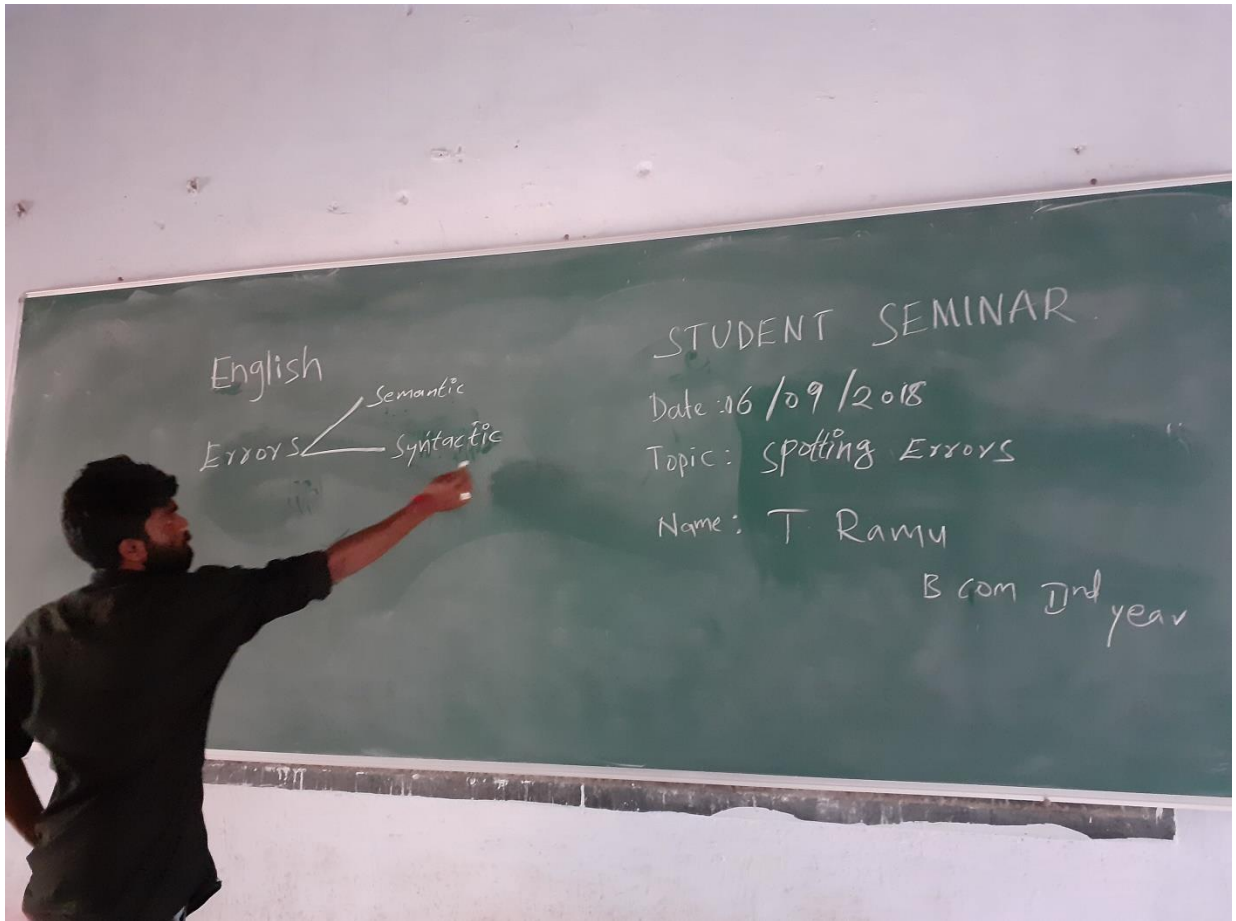 English
Semantic
Errors
Syntactic
STUDENT SEMINAR
Date: 06/09/2018
Topic: Spotting Errors
Name: T Ramu
B com IInd year